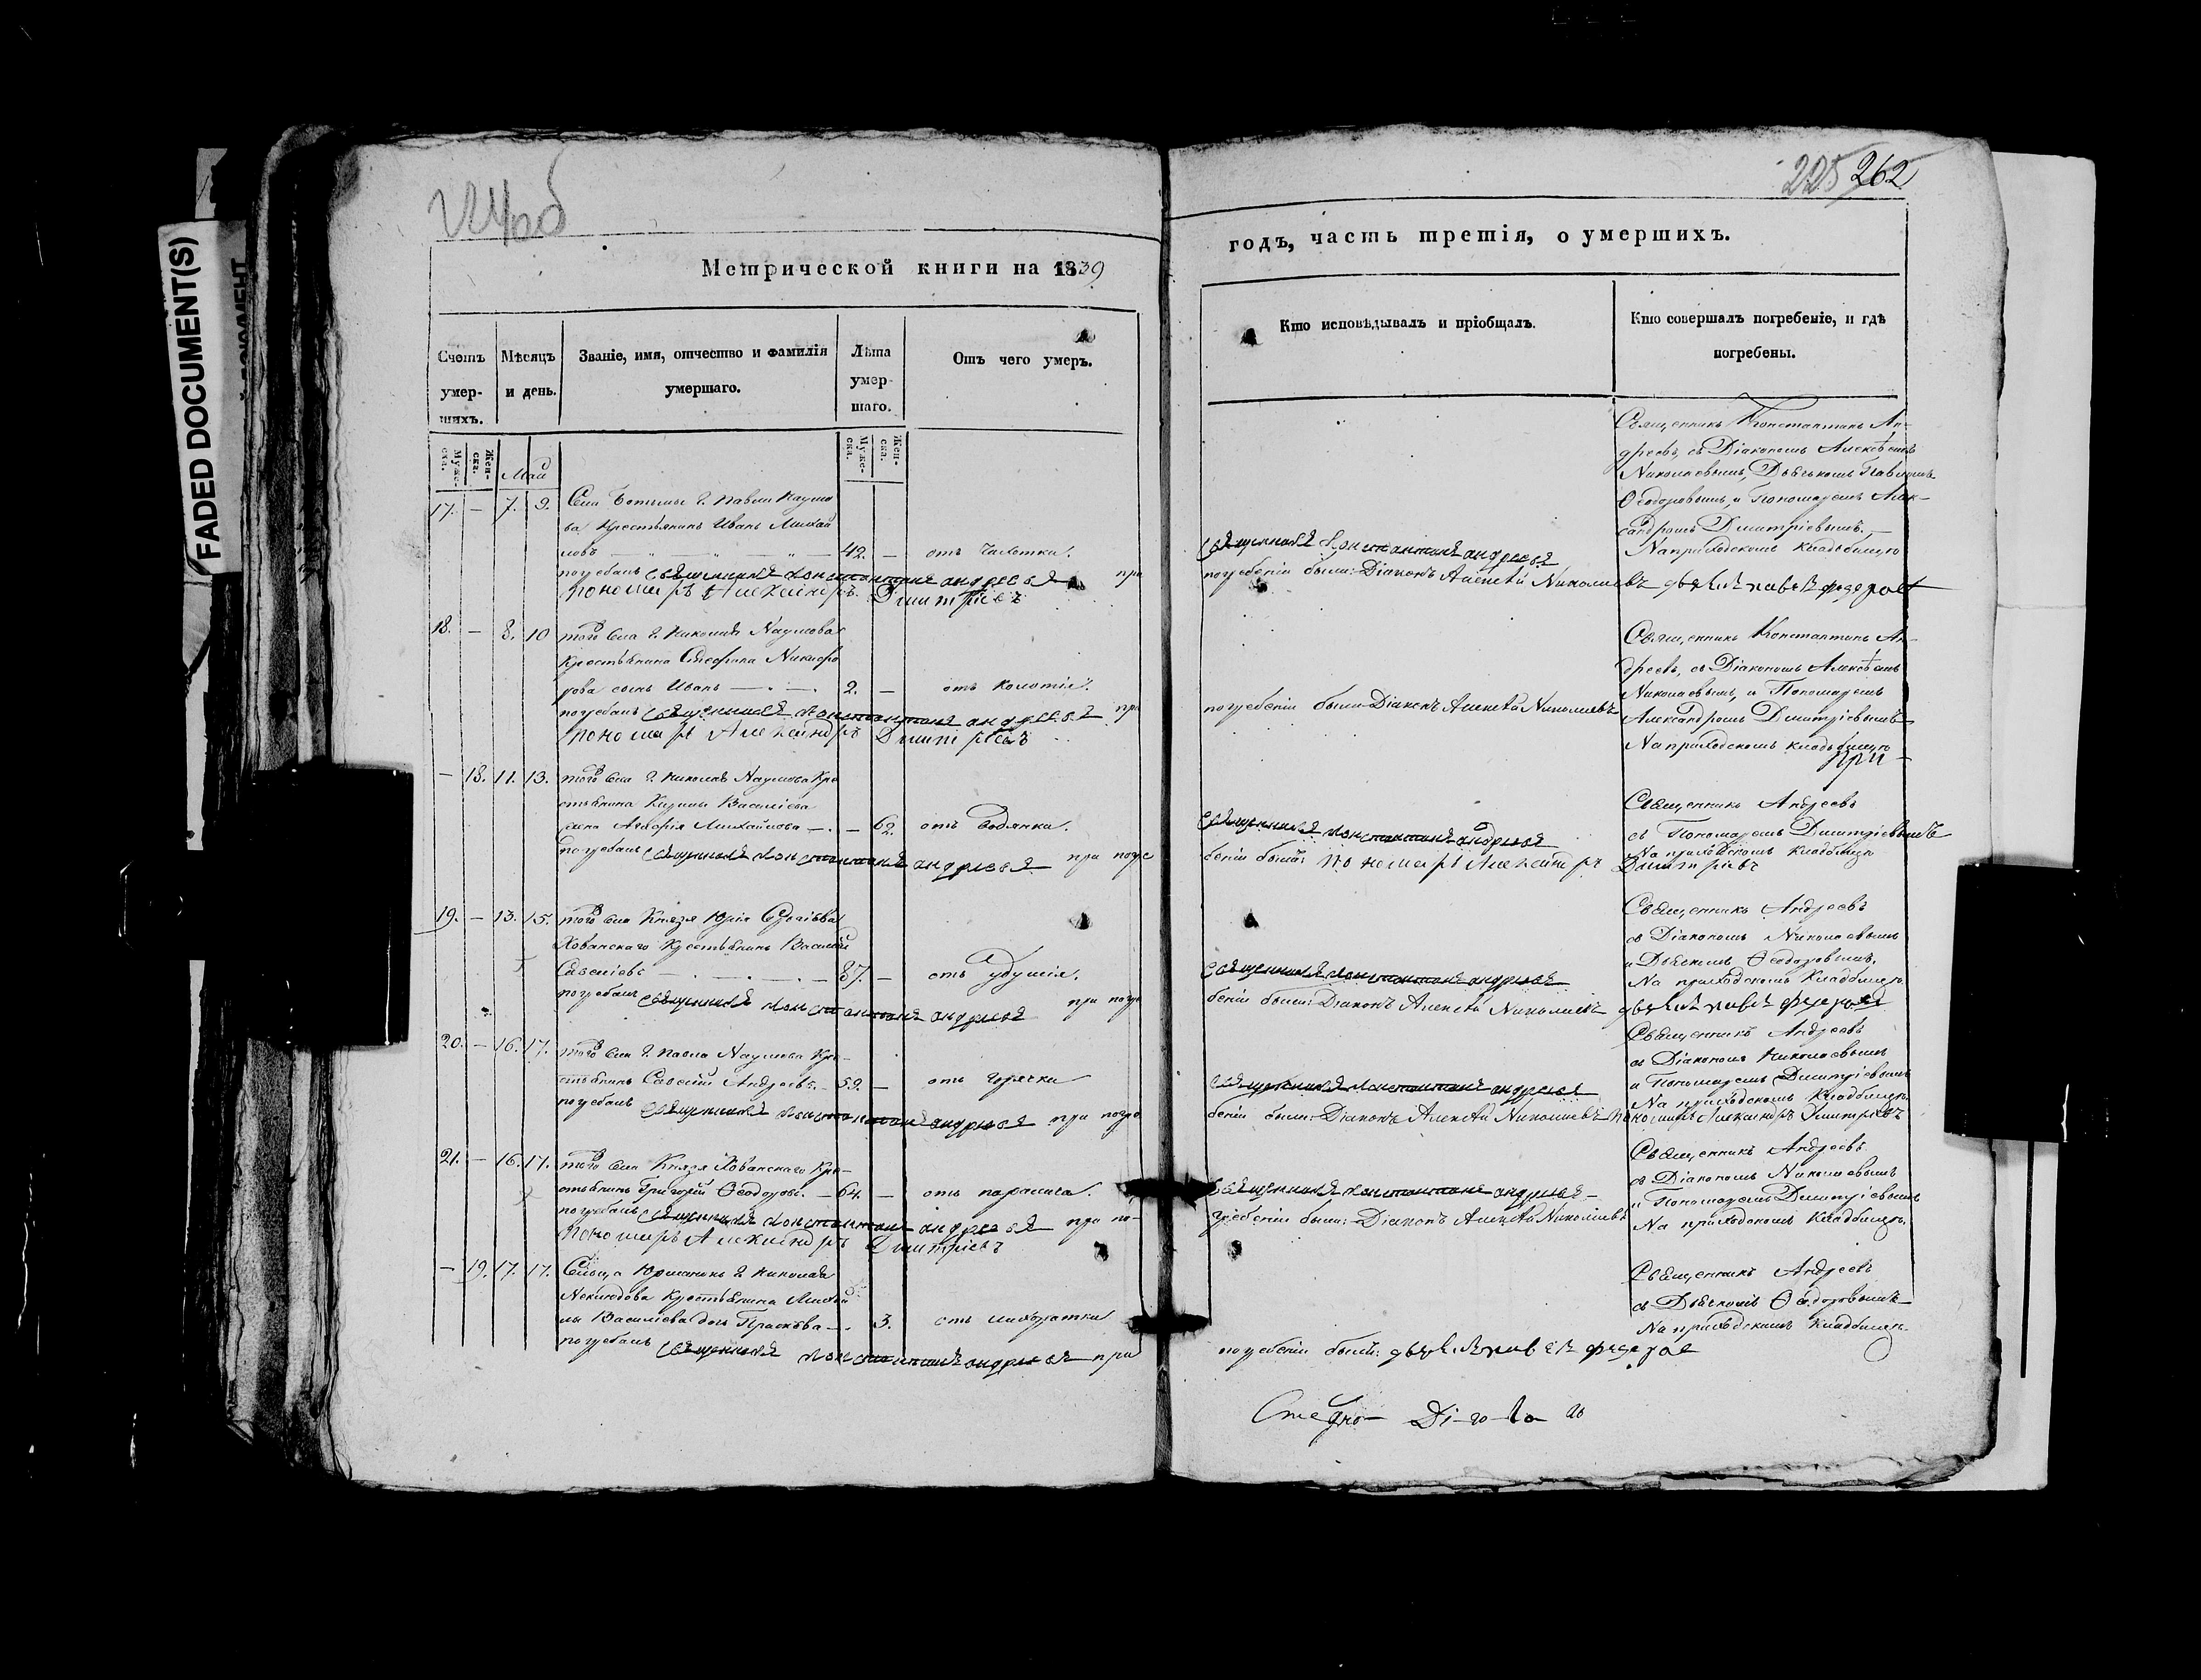 FADED DOCUMENT(S)
225 262
Метрической книги на 1839
годъ, часть третія, о умершихъ.
Счетъ умер-шихъ.
Мѣсяцъ и день.
Званіе, имя, отчество и фамилія умершаго.
Лѣта умер-шаго.
Отъ чего умеръ.
Кто исповѣдывалъ и пріобщалъ.
Кто совершалъ погребеніе, и гдѣ погребены.
Муже-ска.
Жен-ска.
Май
Муже-ска.
Жен-ска.
17. — 7. 9. Села Г. Павла Наумо
ва Крестьянинъ Иванъ Михай
ловъ — 42. — отъ чахотки.
погребалъ священникъ константинъ андреевъ при
пономарь Александръ Дмитріевъ
священникъ константинъ андреевъ
погребеніи были: Діаконъ Алексѣй Николаевъ дьячекъ павелъ федоровъ
Священникъ Константинъ Ан-
дреевъ, съ Діакономъ Алексѣемъ
Николаевымъ, Дьячкомъ Павломъ
Ѳеодоровымъ, и Пономаремъ Алек-
сандромъ Дмитріевымъ. —
На приходскомъ кладбищѣ
18. — 8. 10 того села Г. Николая Наумова
Крестьянина Стефана Никифо
рова сынъ Иванъ — 2. —
погребалъ священникъ константинъ андреевъ при
пономарь Александръ Дмитріевъ
погребеніи были Діаконъ Алексѣй Николаевъ
Священникъ Константинъ Ан-
дреевъ, съ Діакономъ Алексѣемъ
Николаевымъ, и Пономаремъ
Александромъ Дмитріевымъ
На приходскомъ кладбищѣ
при —
— 18. 11. 13. того села Г. Николая Наумова Кре
стьянина Василіева
жена Михайлова — — 62. отъ водянки.
погребалъ священникъ константинъ андреевъ при погре
священникъ константинъ андреевъ
беніи были: пономарь Александръ Дмитріевъ
Священникъ Андреевъ
съ Пономаремъ Дмитріевымъ
На приходскомъ кладбищѣ
19. — 13. 15. того села Князя Юрія Сергіева
Хованскаго Крестьянинъ Василій
Савеліевъ — 87. — отъ удушія.
погребалъ священникъ константинъ андреевъ при погре
священникъ константинъ андреевъ
беніи были: Діаконъ Алексѣй Николаевъ дьячекъ павелъ федоровъ
Священникъ Андреевъ
съ Діакономъ Николаевымъ
и Дьячкомъ Ѳеодоровымъ.
На приходскомъ Кладбищѣ
20. — 16. 17. того села Г. Павла Наумова Кре-
стьянинъ Савелій Андреевъ. 59. — отъ горячки
погребалъ священникъ константинъ андреевъ при погре
священникъ константинъ андреевъ
беніи были: Діаконъ Алексѣй Николаевъ пономарь Александръ Дмитріевъ
Священникъ Андреевъ
съ Діакономъ Николаевымъ
и Пономаремъ Дмитріевымъ
На приходскомъ Кладбищѣ
21. — 16. 17. того села Князя Хованскаго Кре-
стьянинъ Григорій Ѳеодоровъ. — 64. — отъ паралича.
погребалъ священникъ константинъ андреевъ при по-
пономарь Александръ Дмитріевъ
священникъ константинъ андреевъ —
гребеніи были: Діаконъ Алексѣй Николаевъ
Священникъ Андреевъ
съ Діакономъ Николаевымъ
и Пономаремъ Дмитріевымъ
На приходскомъ Кладбищѣ.
— 19. 17. 17. Сельца Г. Николая
Неклюдова Крестьянина Михай
лы Василіева дочь Прасковья — 3. отъ лихорадки
погребалъ священникъ константинъ андреевъ при
погребеніи былъ: дьячекъ павелъ федоровъ
Священникъ Андреевъ
съ Дьячкомъ Ѳеодоровымъ
На приходскомъ Кладбищѣ.